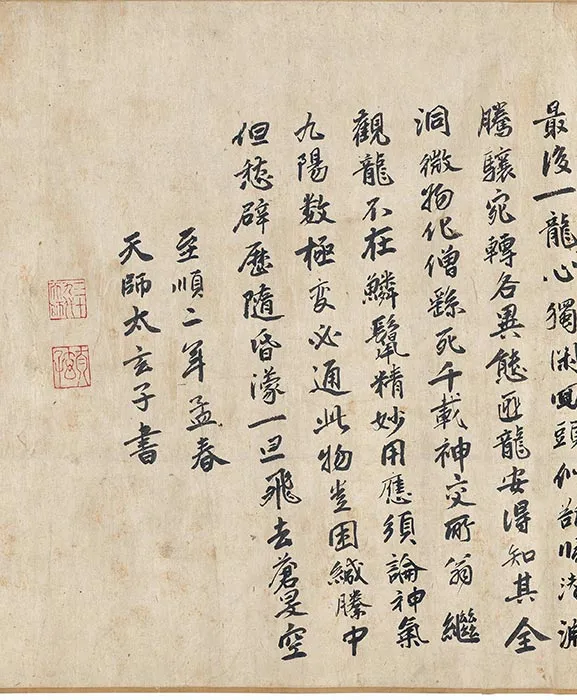 最後一龍心獨閑回頭似
騰驤宛轉各異態匪龍安得知其全
洞微物化僧繇死千載神交所翁繼
觀龍不在鱗鬣精妙用應須論神氣
九陽数極变必通此物豈困緘縢中
但愁辟歷隨昏濛一旦飛去蒼旻空
至順二年孟春
天師太玄子書